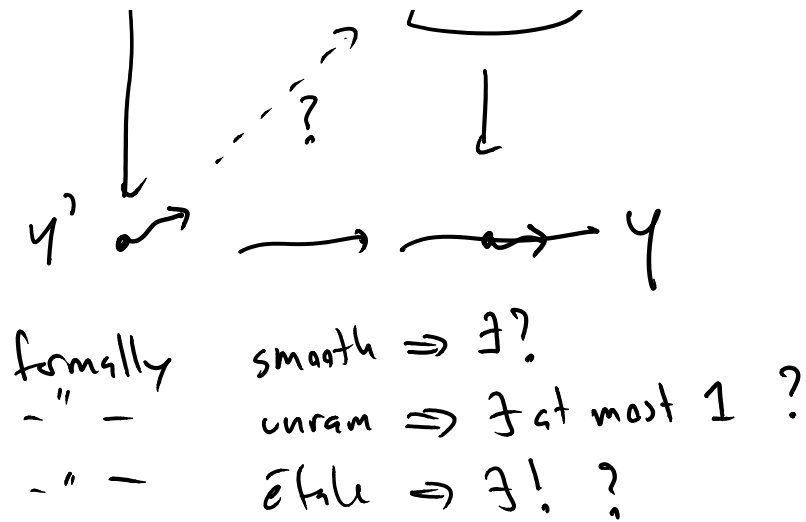 ?
y' y
formally smooth ⇒ ∃?
-"- unram ⇒ ∃ at most 1 ?
-"- étale ⇒ ∃! ?